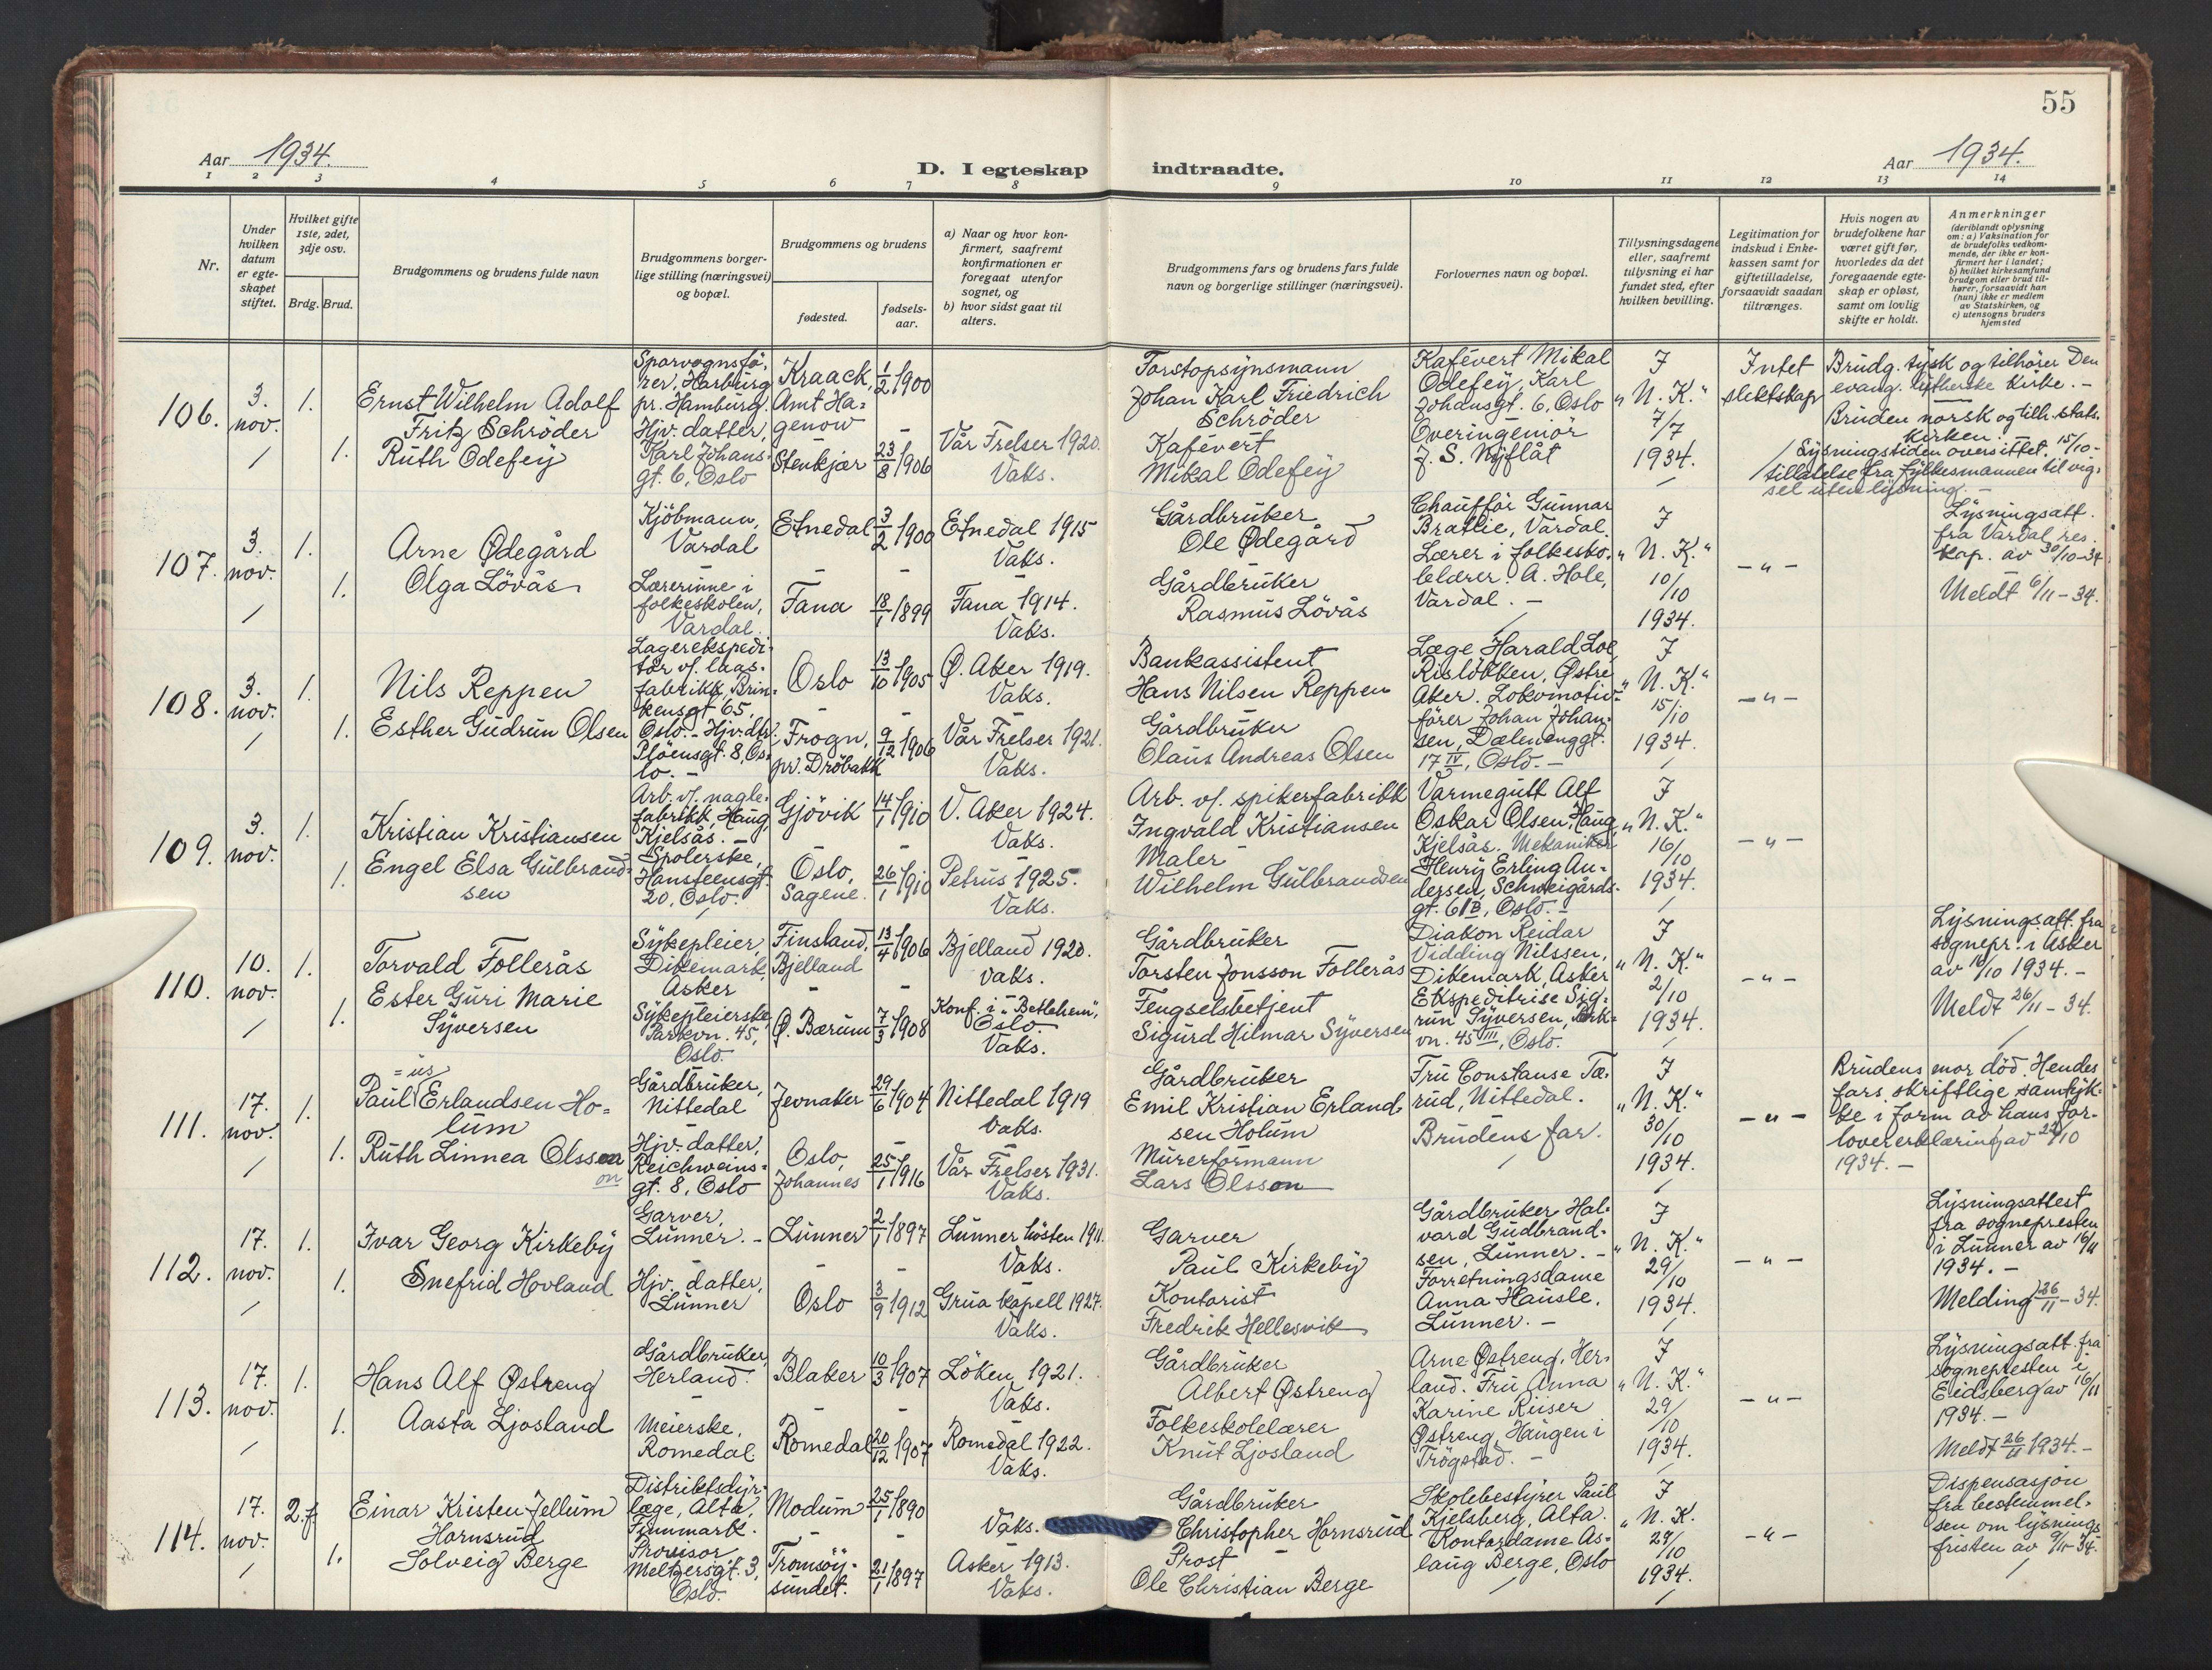 55
Aar 1934.
D. I egteskap indtraadte.
Aar 1934.
1 2 3 4 5 6 7 8 9 10 11 12 13 14
Nr.
Under hvilken datum er egteskapet stiftet.
Hvilket gifte 1ste, 2det, 3dje osv.
Brdg. Brud.
Brudgommens og brudens fulde navn
Brudgommens borgerlige stilling (næringsvei) og bopæl.
Brudgommens og brudens
fødested.
fødselsaar.
a) Naar og hvor konfirmert, saafremt konfirmationen er foregaat utenfor sognet, og
b) hvor sidst gaat til alters.
Brudgommens fars og brudens fars fulde navn og borgerlige stillinger (næringsvei).
Forlovernes navn og bopæl.
Tillysningsdagene eller, saafremt tillysning ei har fundet sted, efter hvilken bevilling.
Legitimation for indskud i Enkekassen samt for giftetilladelse, forsaavidt saadan tiltrænges.
Hvis nogen av brudefolkene har været gift før, hvorledes da det foregaaende egteskap er opløst, samt om lovlig skifte er holdt.
Anmerkninger (deriblandt oplysning om: a) Vaksination for de brudefolks vedkommende, der ikke er konfirmert her i landet; b) hvilket kirkesamfund brudgom eller brud tilhører, forsaavidt han (hun) ikke er medlem av Statskirken, og c) utensogns bruders hjemsted
106.
3. nov.
1.
Ernst Wilhelm Adolf
Fritz Schröder
Sporvognsfö-
rer, Harburg
pr. Hamburg.
Kraack,
Amt Ha-
genow
1/2 1900
Forstopsynsmann
Johan Karl Friedrich
Schröder
Kafévert Mikal
Odefey, Karl
Johansgt. 6, Oslo
Overingeniör
J. S. Nyflåt
I
"N. K."
7/7
1934.
Intet
slektskap
Brudg. tysk og tilhörer Den
evang. lutherske kirke. -
Bruden norsk og tilh. stats-
kirken. -
Lysningstiden oversittet. 15/10 -
tillatelse fra fylkesmannen til vig-
sel uten lysning. -
1.
Ruth Odefey
Hjv. datter,
Karl Johans-
gt. 6, Oslo
Stenkjær
23/8 1906
Vår Frelser 1920.
Vaks.
Kafévert
Mikal Odefey
107.
3. nov.
1.
Arne Ødegård
Kjöbmann,
Vardal
Etnedal
3/2 1900
Etnedal 1915
Vaks.
Gårdbruker
Ole Ødegård
Chaufför Gunnar
Bratlie, Vardal.
Lærer i folkesko-
lelærer A. Hole,
Vardal. -
I
"N. K."
10/10
1934.
- " -
Lysningsatt.
fra Vardal res.
kap. av 30/10-34
Meldt 6/11 - 34.
1.
Olga Lövås
Lærerinne i
folkeskolen,
Vardal.
Fana
18/1 1899
Fana 1914.
Vaks.
Gårdbruker
Rasmus Lövås
108.
3. nov.
1.
Nils Reppen
Lagerekspedi-
tör v/. laas-
fabrikk, Brin-
kensgt 65,
Oslo. -
Oslo
13/10 1905
Ø. Aker 1919.
Vaks.
Bankassistent
Hans Nilsen Reppen
Læge Harald Loe,
Rislökken, Østre
Aker. Lokomotiv-
förer Johan Johan-
sen, Dælenenggt.
17 IV, Oslo. -
I
"N. K."
15/10
1934.
- " -
1.
Esther Gudrun Olsen
Hjv. dtr.
Plöensgt. 8, Os-
lo. -
Frogn,
pr. Dröbakk
9/12 1906
Vår Frelser 1921.
Vaks.
Gårdbruker
Olaus Andreas Olsen
109.
3. nov.
1.
Kristian Kristiansen
Arb. v/. nagle-
fabrikk, Haug,
Kjelsås. -
Gjövik
14/1 1910
V. Aker 1924.
Vaks.
Arb. v/. spikerfabrikk
Ingvald Kristiansen
Varmegutt Alf
Oskar Olsen, Haug,
Kjelsås. Mekaniker
Henry Erling An-
dersen, Schweigårds-
gt. 61 B, Oslo. -
I
"N. K."
16/10
1934.
- " -
1.
Engel Elsa Gulbrand-
sen
Spolerske,
Hansteensgt.
20, Oslo.
Oslo,
Sagene.
26/1 1910
Petrus 1925.
Vaks.
Maler
Wilhelm Gulbrandsen
110.
10. nov.
1.
Torvald Follerås
Sykepleier,
Dikemark,
Asker
Finsland,
Bjelland
13/4 1906
Bjelland 1920.
Vaks.
Gårdbruker
Torsten Jonsson Follerås
Diakon Reidar
Vidding Nilssen,
Dikemark, Asker
Ekspeditrise Sig-
run Syversen, Park-
vn. 45 III, Oslo.
I
"N. K."
2/10
1934.
- " -
Lysningsatt. fra
sognepr. i Asker
av 10/10 1934. -
Meldt 26/11 - 34.
1.
Ester Guri Marie
Syversen
Sykepleierske
Parkvn. 45,
Oslo.
Ø. Bærum
7/3 1908
Konf. i "Betlehem",
Oslo.
Vaks.
Fengselsbetjent
Sigurd Hilmar Syversen
111.
17. nov.
1.
= us
Paul Erlandsen Ho-
lum
Gårdbruker,
Nittedal
Jevnaker
29/6 1904
Nittedal 1919
Vaks.
Gårdbruker
Emil Kristian Erland-
sen Holum
Fru Constanse Tæ-
rud, Nittedal.
Brudens far.
I
"N. K."
30/10
1934.
- " -
Brudens mor död. Hendes
fars skriftlige samtyk-
ke i form av hans for-
lovererklæring av 29/10
1934. -
1.
Ruth Linnea Olsson
on
Hjv. datter,
Reichweins-
gt. 8, Oslo
Oslo,
Johannes
25/1 1916
Vår Frelser 1931.
Vaks.
Murerformann
Lars Olsson
112.
17. nov.
1.
Ivar Georg Kirkeby
Garver,
Lunner. -
Lunner
2/1 1897
Lunner hösten 1911.
Vaks.
Garver
Paul Kirkeby
Gårdbruker Hal-
vard Gudbrand-
sen, Lunner. -
Forretningsdame
Anna Hausle,
Lunner. -
I
"N. K."
29/10
1934.
- " -
Lysningsattest
fra sognepresten
i Lunner av 16/11
1934. -
Melding 26/11 - 34.
1.
Snefrid Hovland
Hjv. datter,
Lunner
Oslo
3/9 1912
Grua kapell 1927.
Vaks.
Kontorist
Fredrik Hellesvik
113.
17. nov.
1.
Hans Alf Østreng
Gårdbruker,
Herland
Blaker
10/3 1907
Löken 1921.
Vaks.
Gårdbruker
Albert Østreng
Arne Østreng, Her-
land. Fru Anna
Karine Riiser
Østreng, Haugen i
Trögstad. -
I
"N. K."
29/10
1934.
- " -
Lysningsatt. fra
sognepresten i
Eidsberg av 16/11
1934. -
Meldt 26/11 1934. -
1.
Aasta Ljosland
Meierske,
Romedal
Romedal
20/12 1907
Romedal 1922.
Vaks.
Folkeskolelærer
Knut Ljosland
114.
17. nov.
2. f
Einar Kristen Jellum
Hornsrud
Distriktsdyr-
læge, Alta,
Finnmark.
Modum
25/1 1890
Vaks.
Gårdbruker
Christopher Hornsrud
Skolebestyrer Paul
Kjelsberg, Alta.
Kontordame As-
laug Berge, Oslo
I
"N. K.
29/10
1934.
- " -
Dispensasjon
fra bestemmel-
sen om lysnings-
fristen av 9/11-34.
1.
Solveig Berge
Provisor
Meltzersgt. 3,
Oslo.
Tromsöy-
sundet.
21/1 1897
Asker 1913.
Vaks.
Prost
Ole Christian Berge